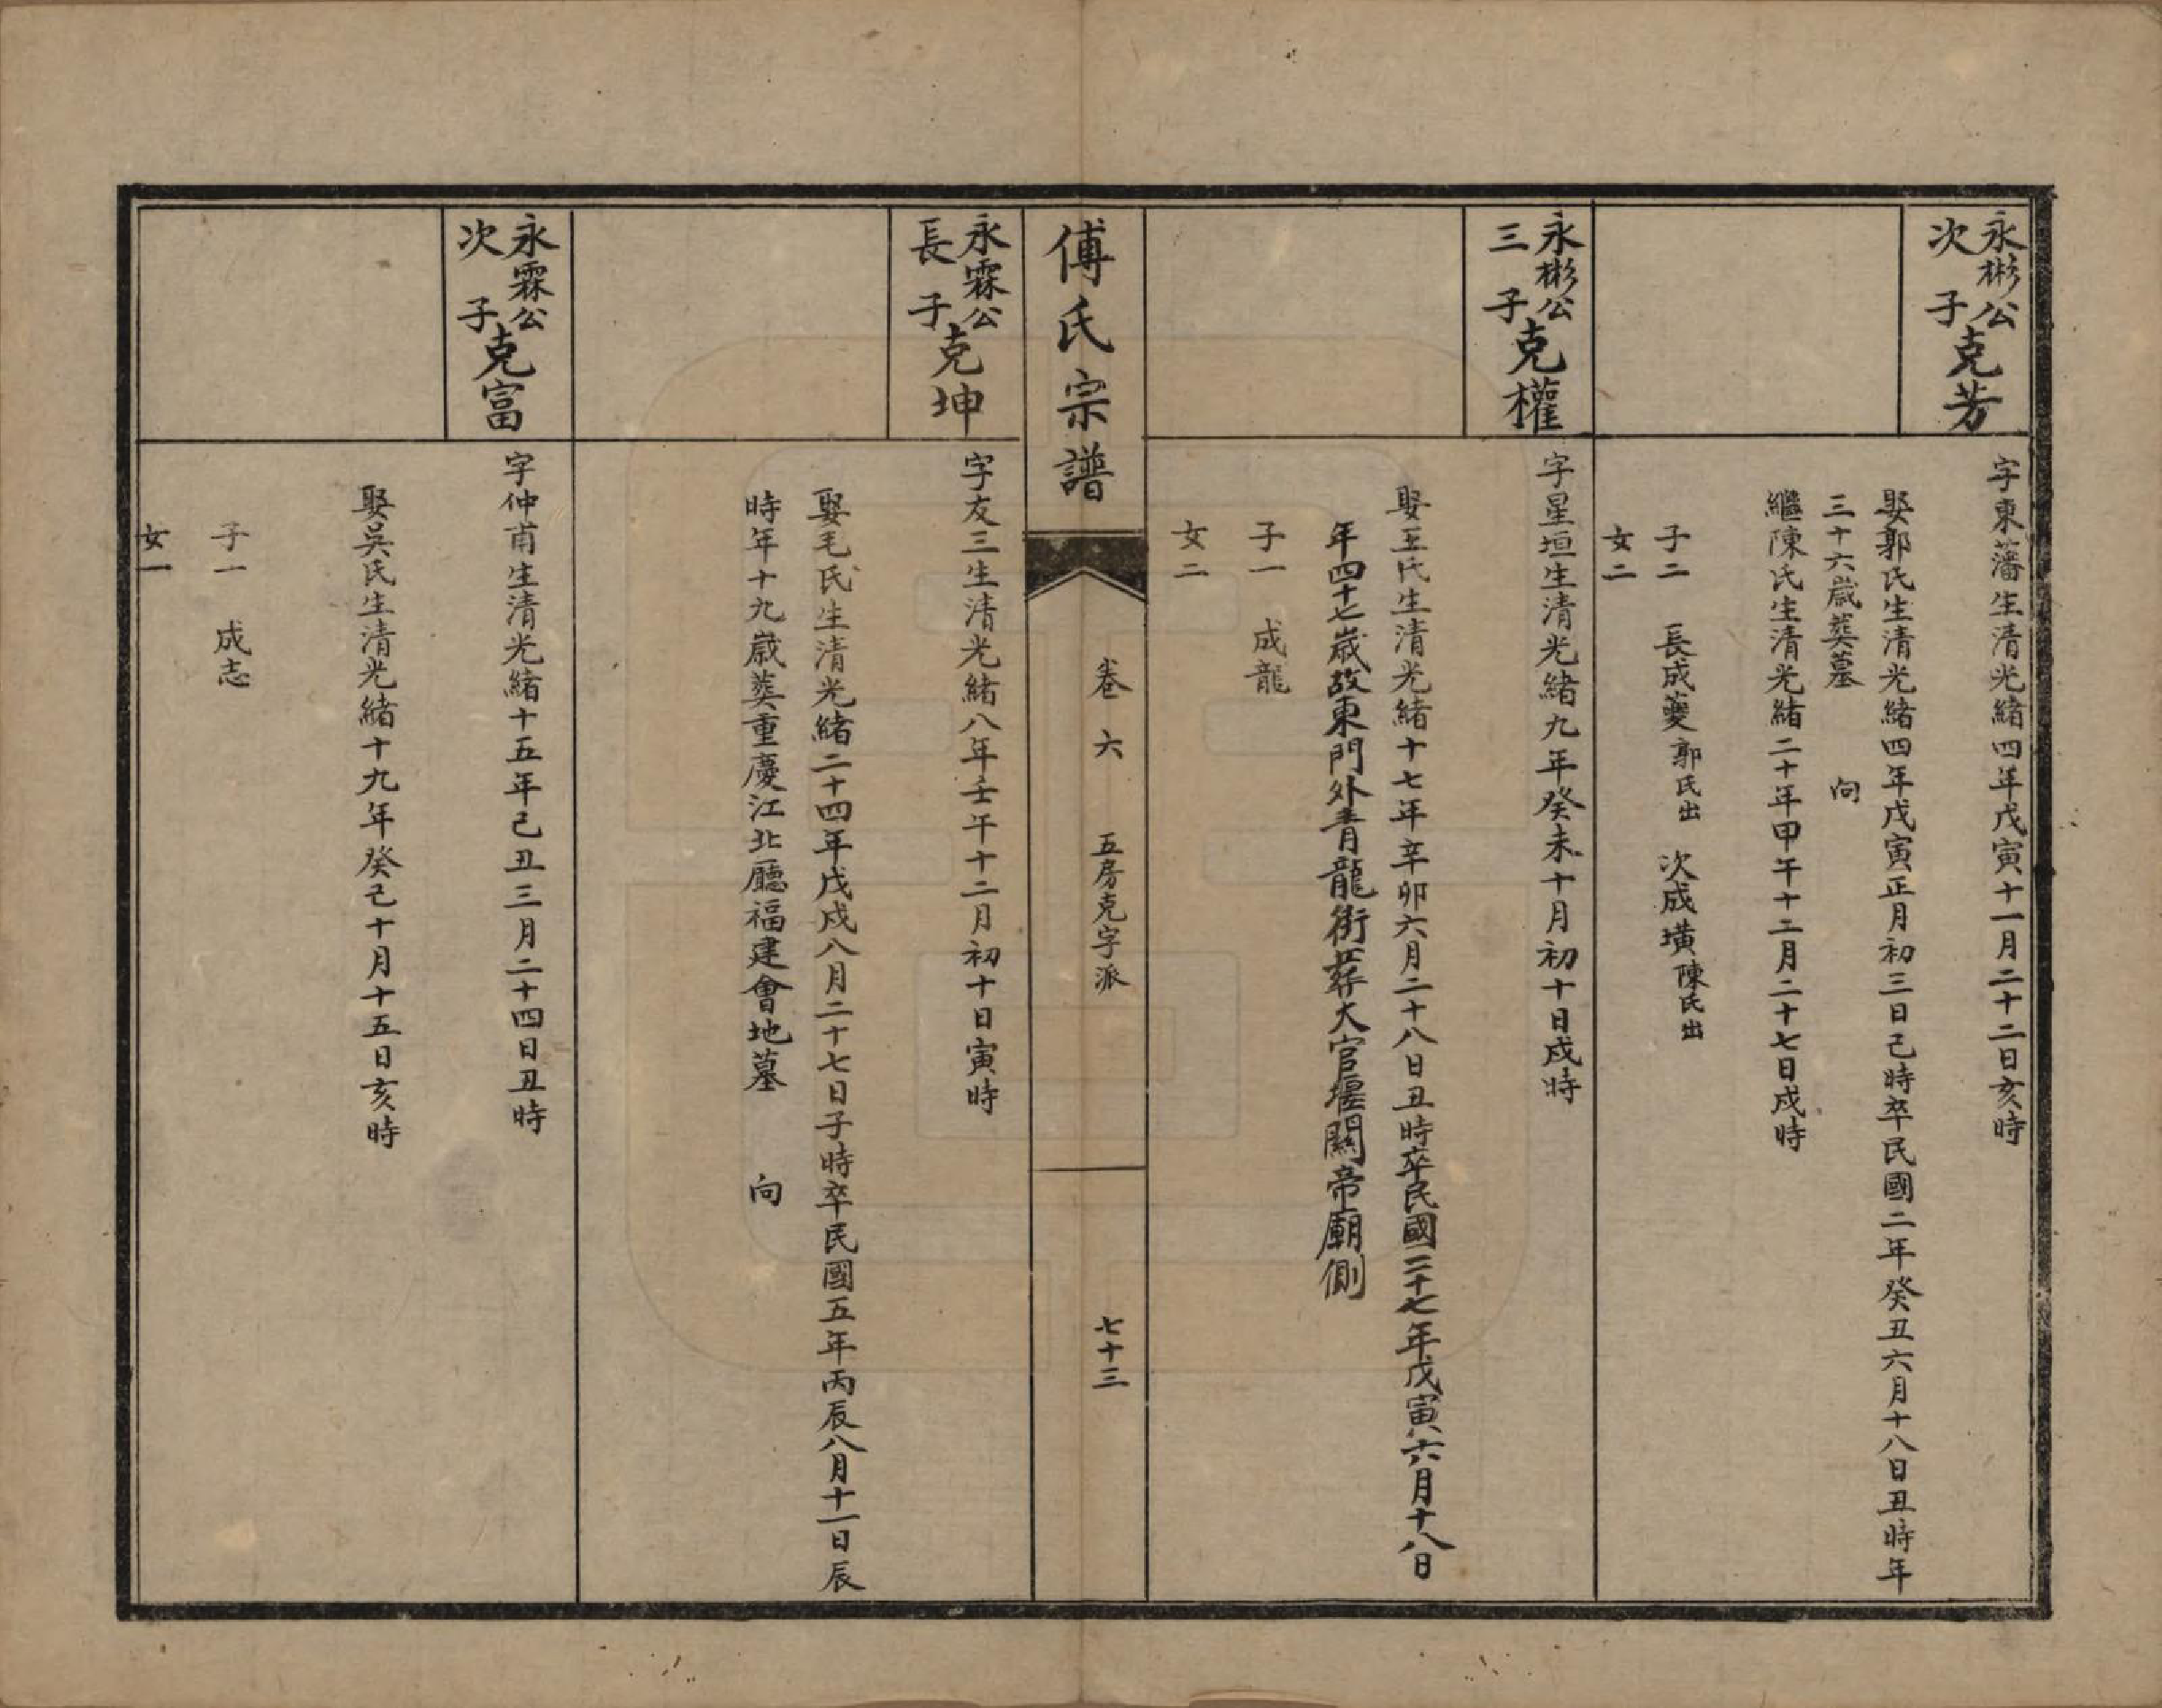 永彬公
次子
克芳
字東藩生清光緒四年戊寅十一月二十二日亥時
娶郭氏生清光緒四年戊寅正月初三日己時卒民國二年癸丑六月十八日丑時年
三十六歲葬墓　向
繼陳氏生清光緒二十年甲午十二月二十七日戌時
子二　長成夔郭氏出　次成璜陳氏出
女二
永彬公
三子
克權
字星垣生清光緒九年癸未十月初十日戌時
娶王氏生清光緒十七年辛卯六月二十八日丑時卒民國二十七年戊寅六月十八日
年四十七歲故東門外青龍街葬大官堰關帝廟側
子一　成龍
女二
傅氏宗譜
卷六　五房克字派
七十三
永霖公
長子
克坤
字友三生清光緒八年壬午十二月初十日寅時
娶毛氏生清光緒二十四年戊戌八月二十七日子時卒民國五年丙辰八月十一日辰
時年十九歲葬重慶江北廳福建會地墓　向
永霖公
次子
克富
字仲甫生清光緒十五年己丑三月二十四日丑時
娶吳氏生清光緒十九年癸己十月十五日亥時
子一　成志
女一